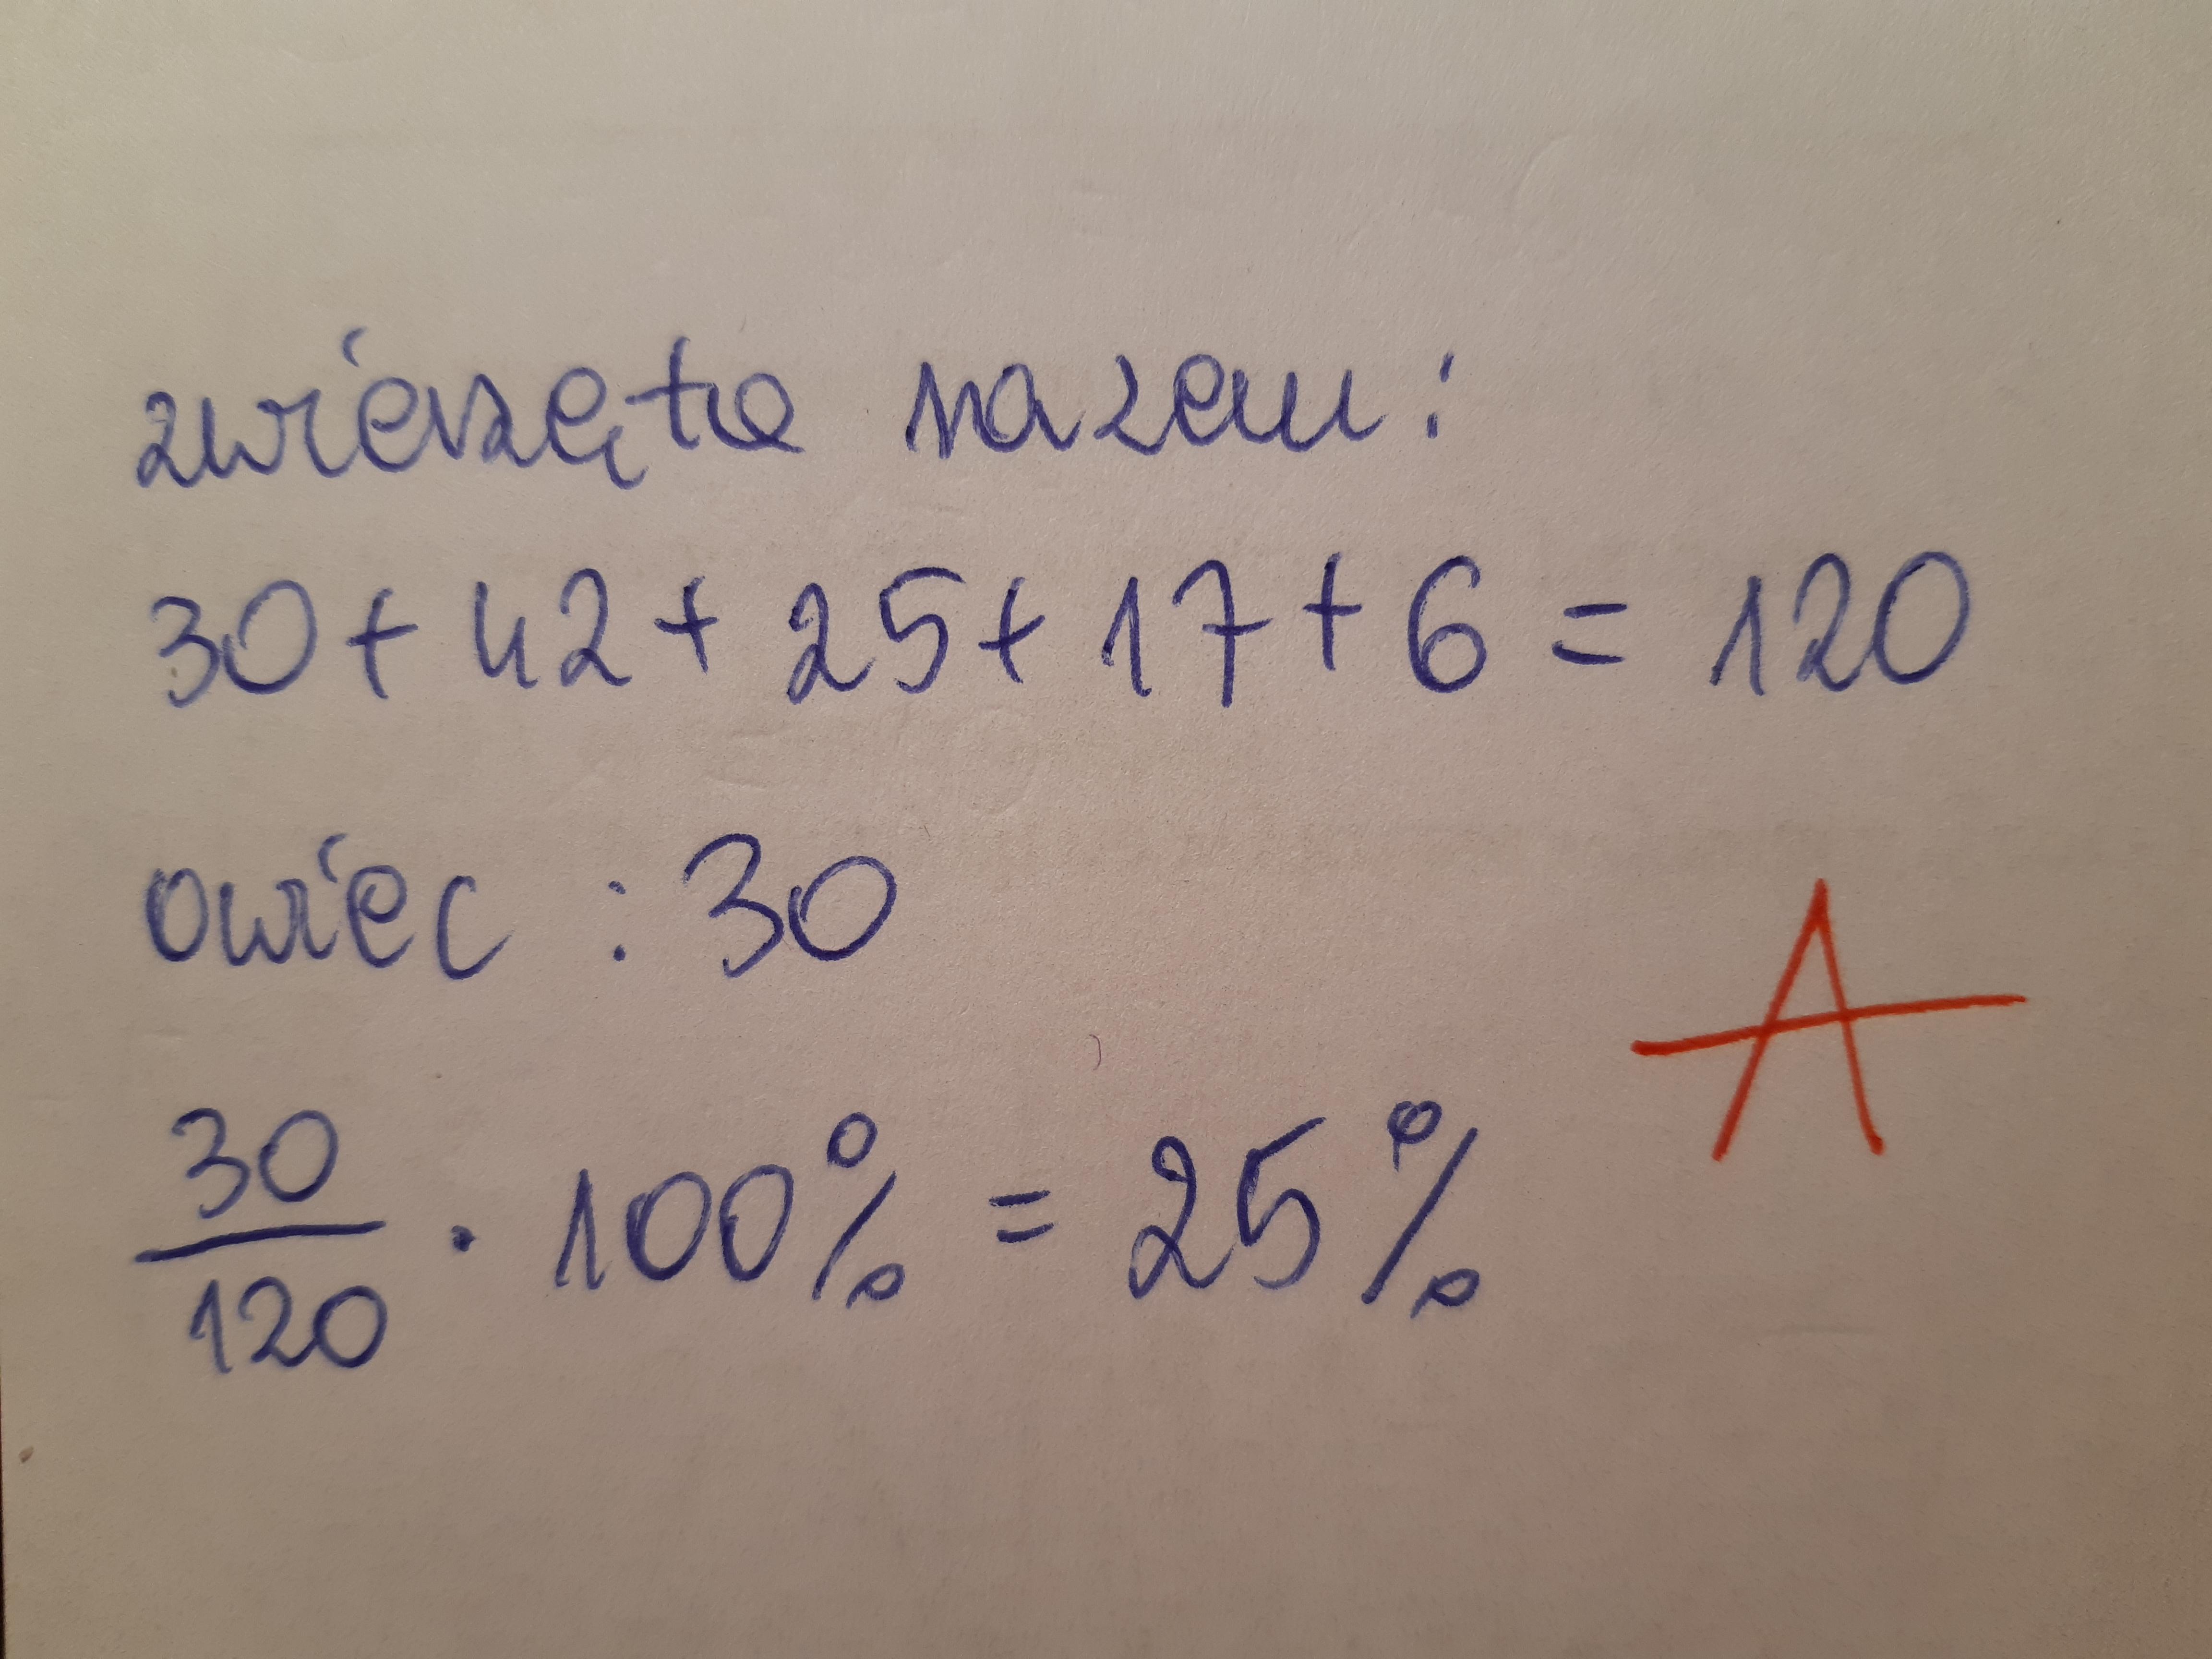 zwierzęta razem:
30 + 42 + 25 + 17 + 6 = 120
owiec : 30
A
30/120 · 100% = 25%